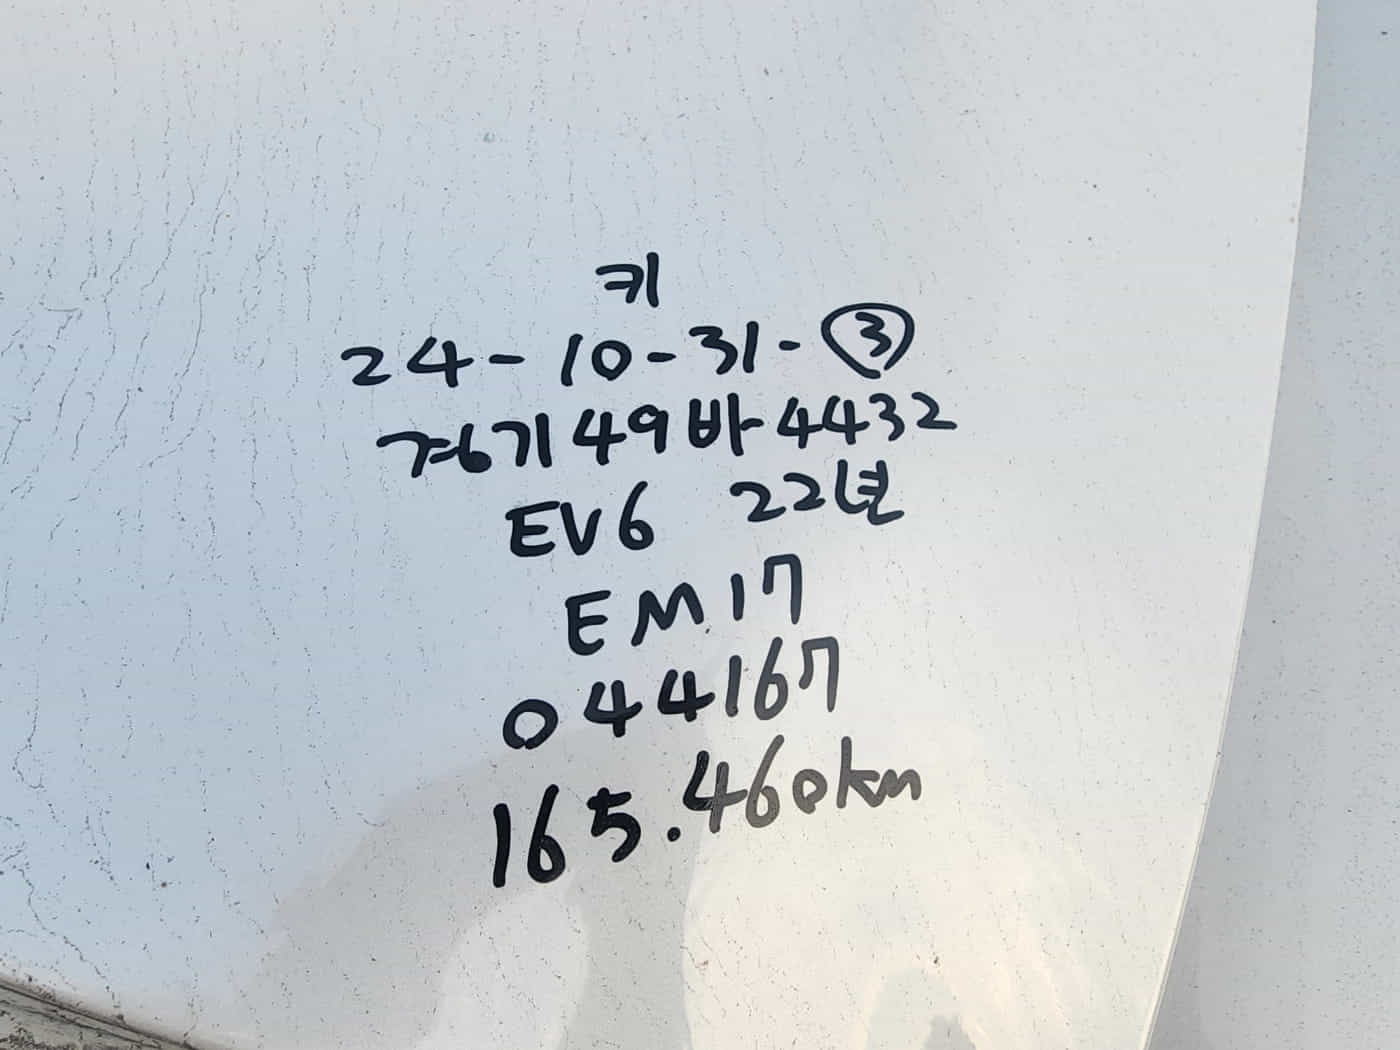 키
24-10-31-③
경기49바4432
EV6 22년
EM17
044167
165.460km